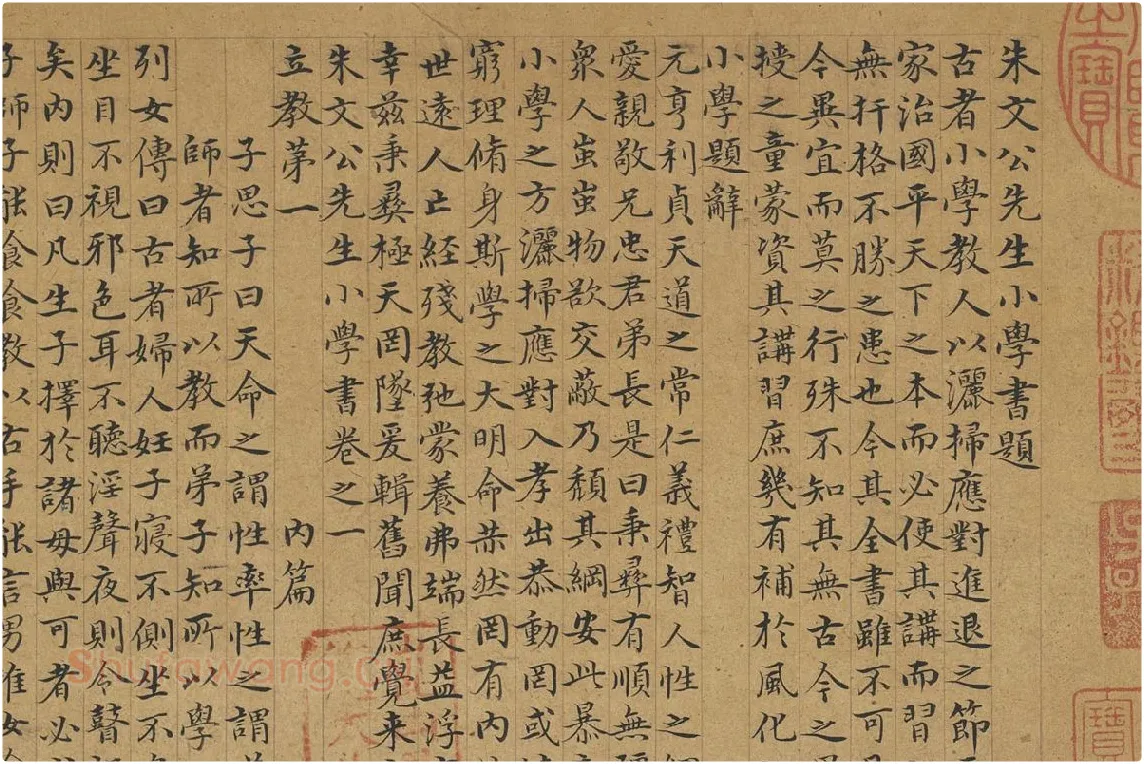 朱文公先生小學書題
古者小學教人以灑掃應對進退之節
家治國平天下之本而必使其講而習
無扞格不勝之患也今其全書雖不可
今異宜而莫之行殊不知其無古今之
授之童蒙資其講習庶幾有補於風化
小學題辭
元亨利貞天道之常仁義禮智人性之
愛親敬兄忠君弟長是曰秉彝有順無
衆人蚩蚩物欲交蔽乃頹其綱安此暴
小學之方灑掃應對入孝出恭動罔或
窮理脩身斯學之大明命赫然罔有內
世遠人亡經殘教弛蒙養弗端長益浮
幸茲秉彝極天罔墜爰輯舊聞庶覺来
朱文公先生小學書卷之一
立教苐一 內篇
子思子曰天命之謂性率性之謂
師者知所以教而弟子知所以學
列女傳曰古者婦人妊子寢不側坐不
坐目不視邪色耳不聽淫聲夜則令瞽
矣內則曰凡生子擇於諸母與可者必
子師子能食食教以右手能言男唯女
Shufawang.cn